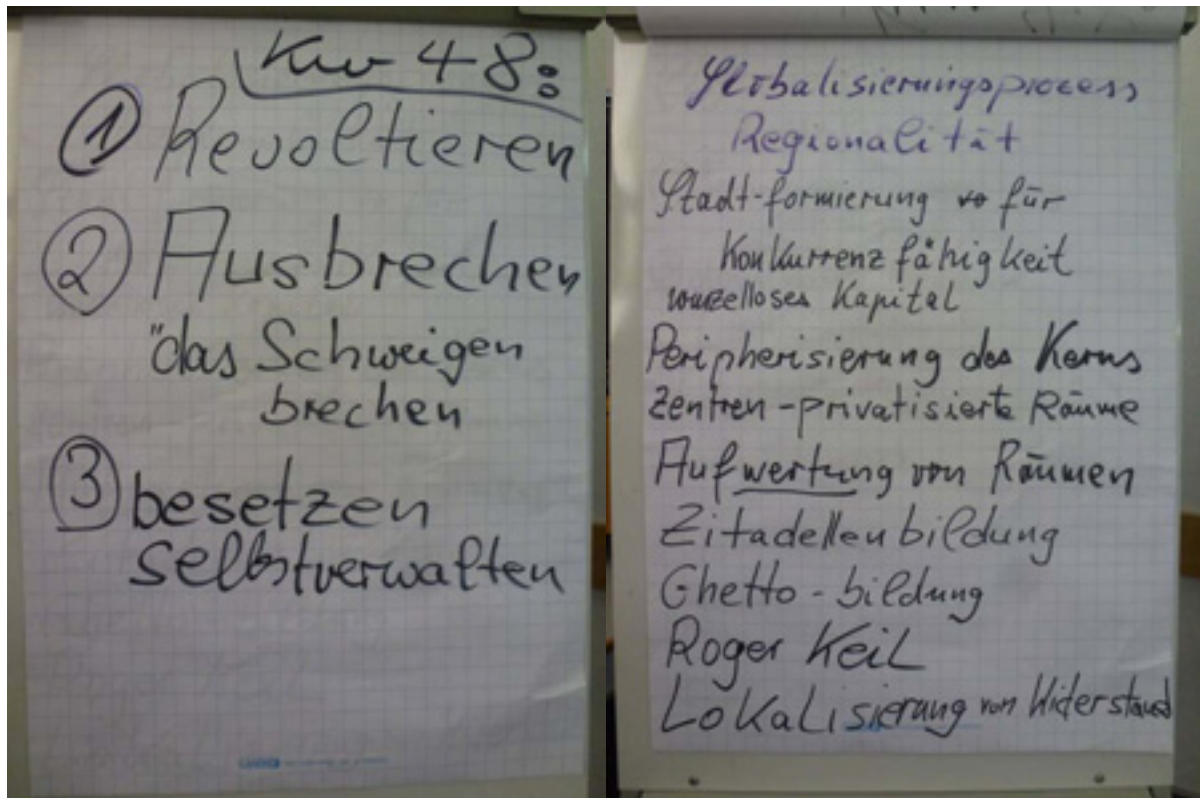 KW 48:
① Revoltieren
② Ausbrechen
"das Schweigen
brechen
③ besetzen
selbstverwalten
Globalisierungsprocess
Regionalität
Stadt-formierung für
Konkurrenzfähigkeit
wurzelloses Kapital
Peripherisierung des Kerns
Zentren-privatisierte Räume
Aufwertung von Räumen
Zitadellenbildung
Ghetto-bildung
Roger Keil
Lokalisierung von Widerstand